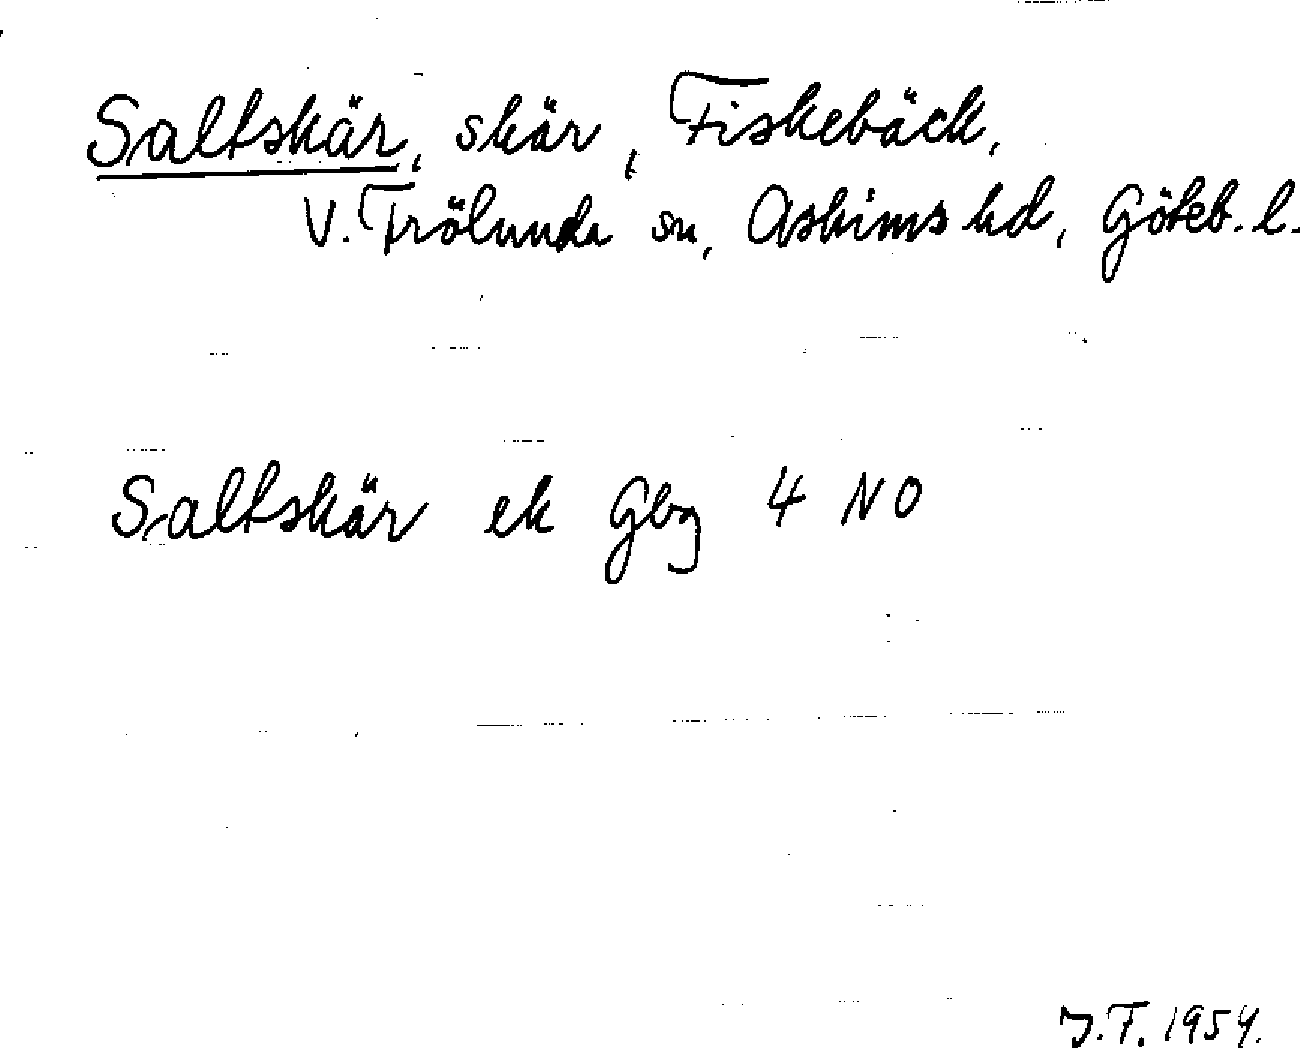 Saltskär, skär, Fiskebäck,
V. Frölunda sn, Askims hd, Göteb. l.
Saltskär ek Gbg 4 NO
J.F. 1954.